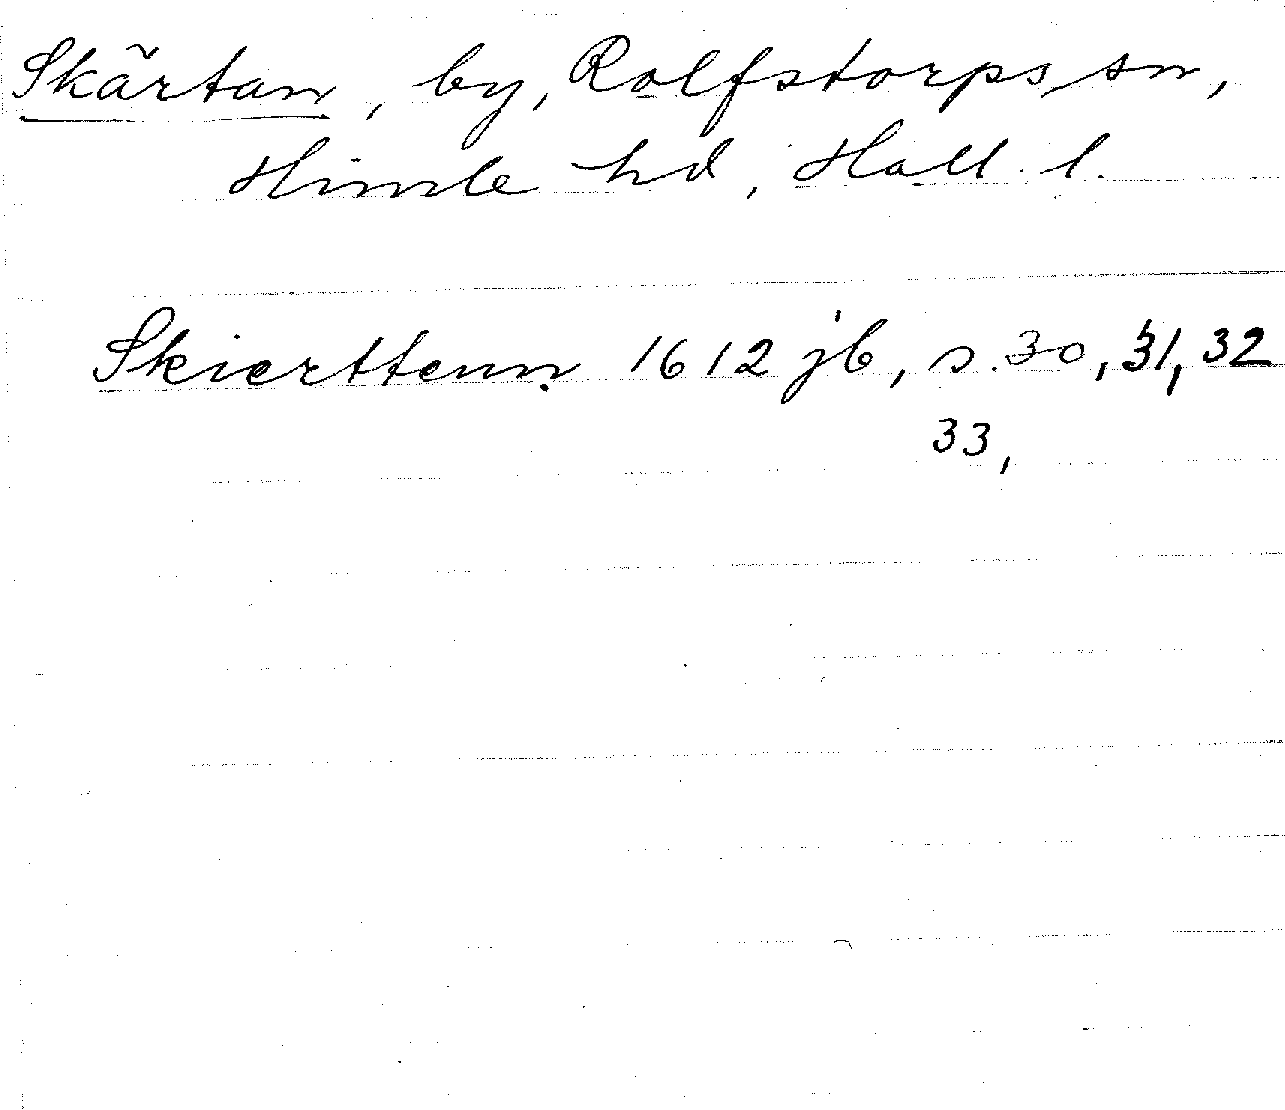 Skärtan, by, Rolfstorps sn,
Himle hd, Hall. l.
Skierttenn 1612 jb, s. 30, 31, 32
33,